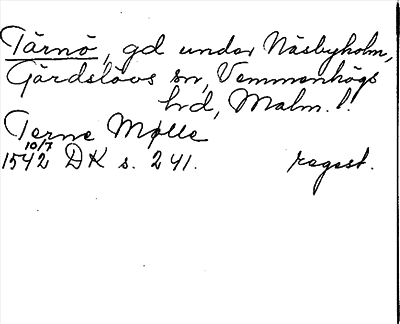 Tärnö, gd under Näsbyholm,
Gärdslövs sn, Vemmenhögs
hrd, Malm. l.
Terne Mølle
10/7
1542 DK s. 241. regest.